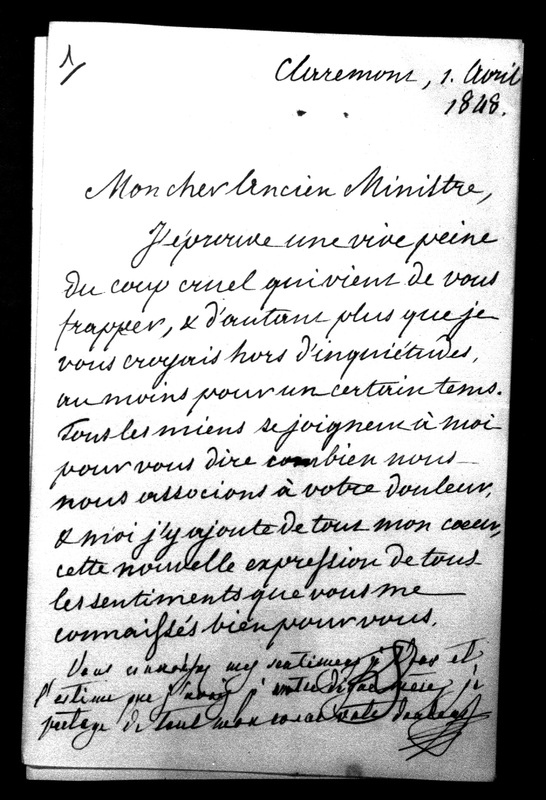 1/
Claremont, 1. Avril
1848.
Mon cher Ancien Ministre,
J'éprouve une vive peine
du coup cruel qui vient de vous
frapper, & d'autant plus que je
vous croyais hors d'inquiétudes,
au moins pour un certain tems.
Tous les miens se joignent à moi
pour vous dire combien nous
nous associons à votre douleur,
& moi j'y ajoute de tout mon cœur,
cette nouvelle expression de tous
les sentiments que vous me
connaissés bien pour vous.
Vous mes sentiments et
l'estime que j'avais je
partage de tout mon cœur votre douleur